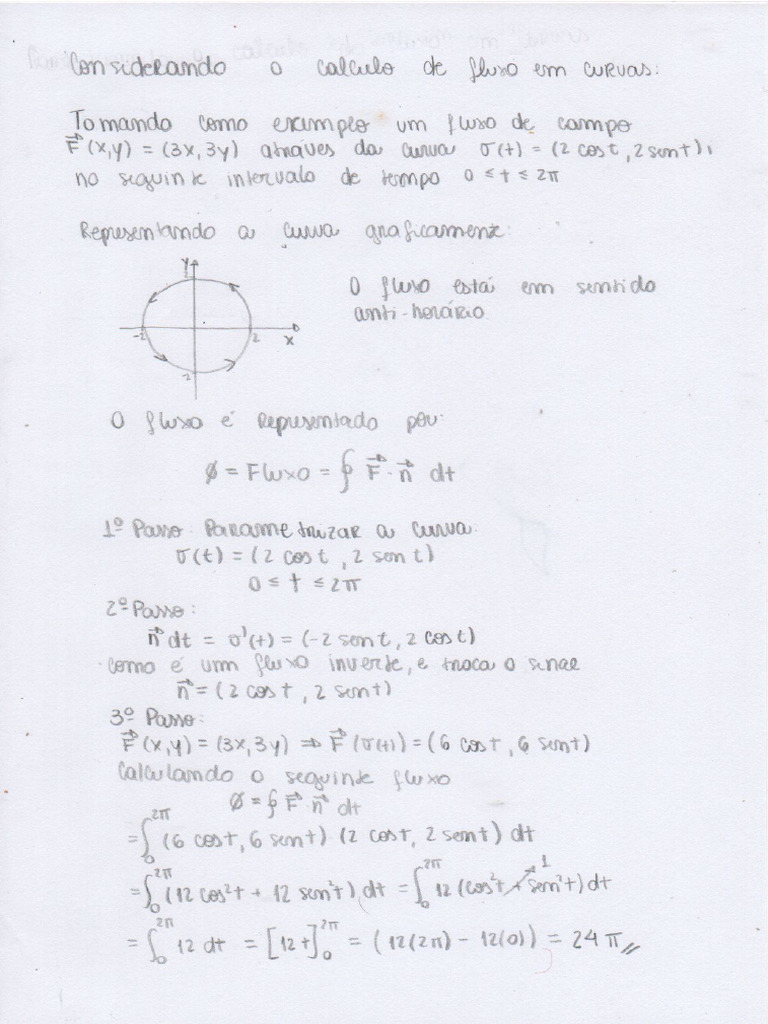 Considerando o calculo de fluxo em curvas:
Tomando como exemplo um fluxo de campo
F⃗(x,y) = (3x,3y) através da curva σ(t) = (2 cost, 2 sent),
no seguinte intervalo de tempo 0 ≤ t ≤ 2π
Representando a curva graficamente:
y
2
-2
2
x
-2
O fluxo está em sentido
anti-horário.
O fluxo é representado por:
Ø = Fluxo = ∮ F⃗ · n⃗ dt
1º Passo: Parametrizar a curva:
σ(t) = (2 cos t, 2 sen t)
0 ≤ t ≤ 2π
2º Passo:
n⃗ dt = σ'(t) = (-2 sent, 2 cost)
como é um fluxo inverte, e troca o sinal
n⃗ = (2 cost, 2 sent)
3º Passo:
F⃗(x,y) = (3x,3y) ⇒ F⃗(σ(t)) = (6 cost, 6 sent)
Calculando o seguinte fluxo
Ø = ∮ F⃗ · n⃗ dt
= ∫₀^2π (6 cost, 6 sent) · (2 cost, 2 sent) dt
= ∫₀^2π (12 cos²t + 12 sen²t) dt = ∫₀^2π 12 (cos²t + sen²t) dt 1
= ∫₀^2π 12 dt = [12t]₀^2π = (12(2π) - 12(0)) = 24π //